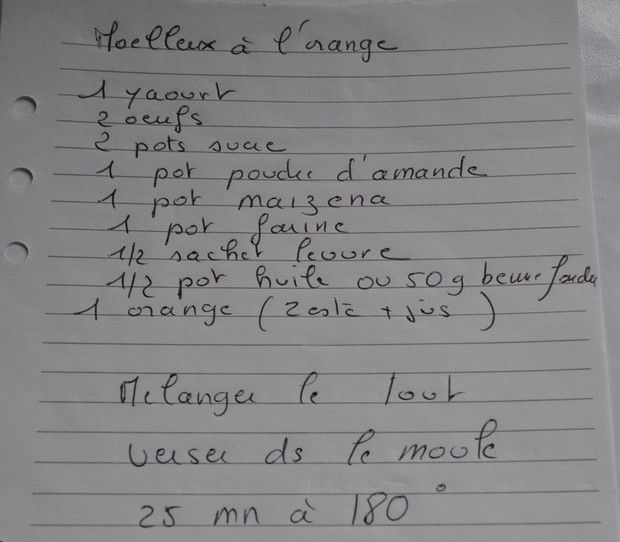 Moelleux à l'orange
1 yaourt
2 oeufs
2 pots sucre
1 pot poudre d'amande
1 pot maizena
1 pot farine
1/2 sachet levure
1/2 pot huile ou 50 g beurre fondu
1 orange (Zeste + jus)
Melanger le tout
verser ds le moule
25 mn à 180°